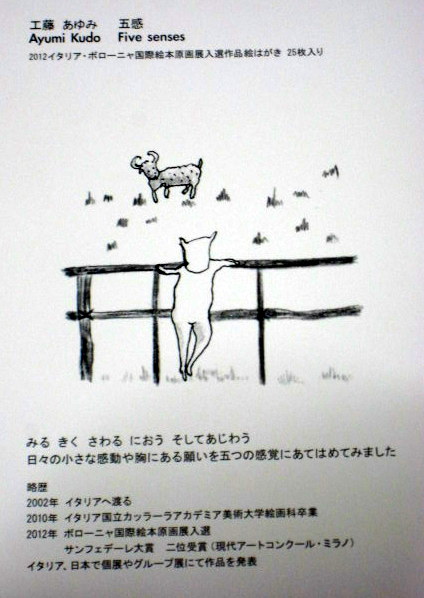 工藤 あゆみ 五感
Ayumi Kudo Five senses
2012イタリア・ボローニャ国際絵本原画展入選作品絵はがき 25枚入り
みる きく さわる におう そしてあじわう
日々の小さな感動や胸にある願いを五つの感覚にあてはめてみました
略歴
2002年 イタリアへ渡る
2010年 イタリア国立カッラーラアカデミア美術大学絵画科卒業
2012年 ボローニャ国際絵本原画展入選
サンフェデーレ大賞 二位受賞(現代アートコンクール・ミラノ)
イタリア、日本で個展やグループ展にて作品を発表